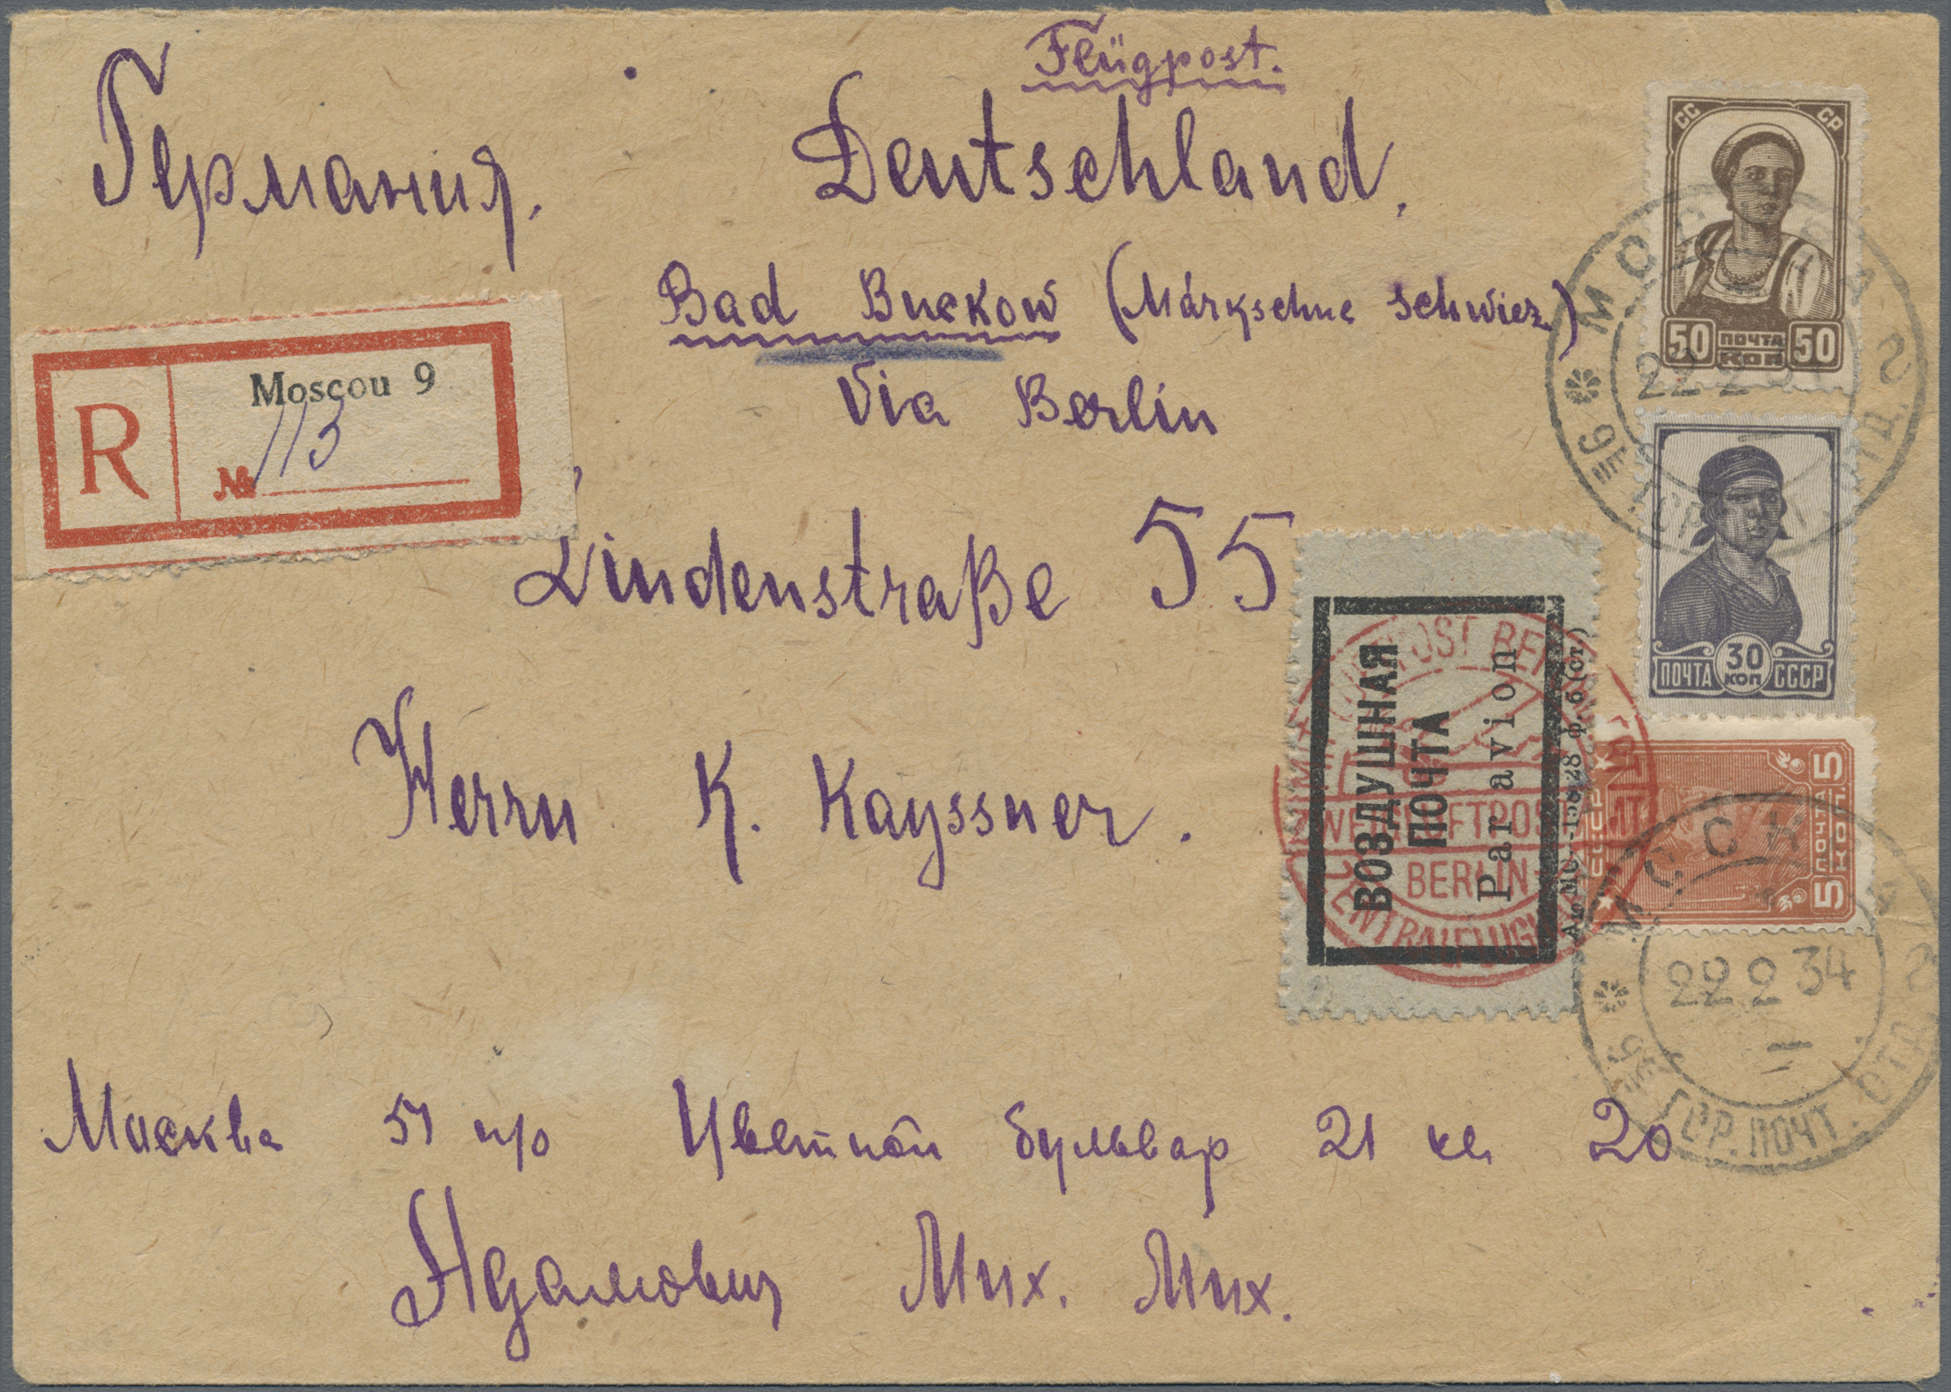 Flügpost.
Германия. Deutschland.
Bad Buckow (Märksche Schwiez)
Via Berlin
R Moscou 9
№ 113
Lindenstraße 55
Herrn K. Kayssner.
Москва 51 п/о Цветной бульвар 21 кв 20
Адамович Мих. Мих.
СС СР
50 ПОЧТА 50
КОП
ПОЧТА 30 СССР
КОП
СССР
5 ПОЧТА 5
КОП
ВОЗДУШНАЯ
ПОЧТА
Par avion
BERLIN
МОСКВА
22 2
МОСКВА
22 2 34
9Е ГОР. ПОЧТ. ОТД.